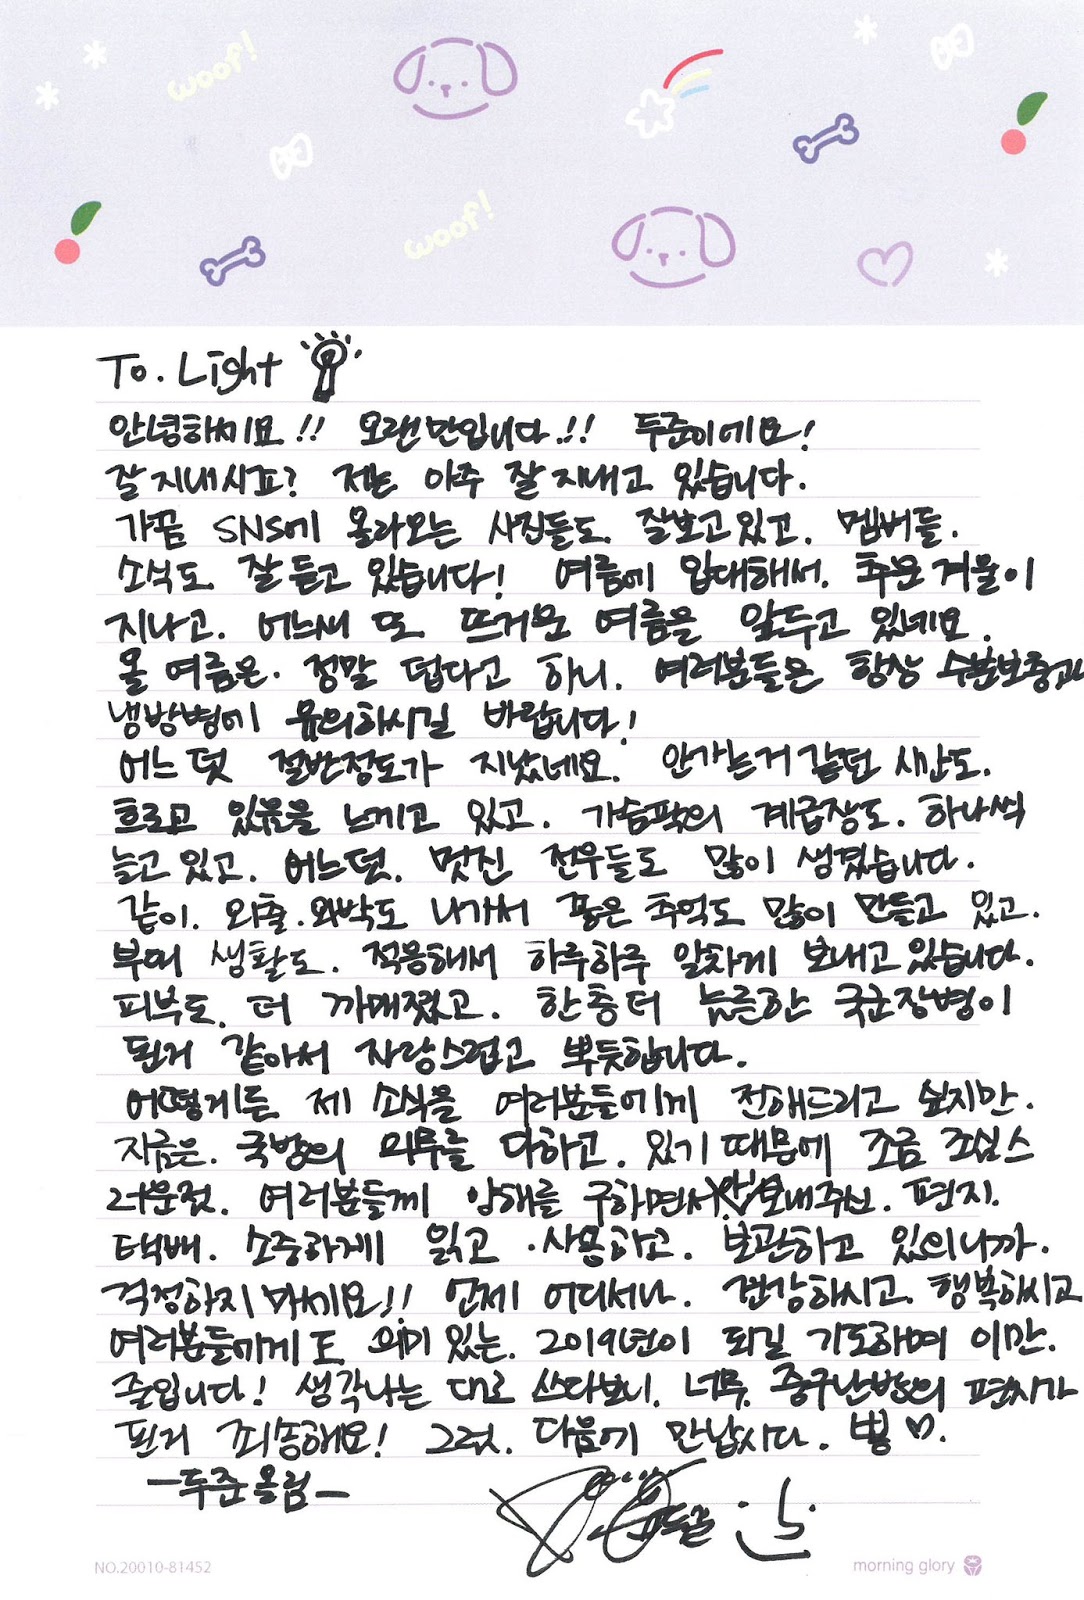 woof!
woof!
To. Light
안녕하세요!! 오랜만입니다.!! 두준이에요!
잘 지내시죠? 저는 아주 잘 지내고 있습니다.
가끔 SNS에 올라오는 사진들도. 잘보고있고. 멤버들.
소식도. 잘 듣고 있습니다! 여름에 입대해서. 추운 겨울이
지나고. 어느새 또 뜨거운 여름을 앞두고 있네요.
올 여름은. 정말 덥다고 하니. 여러분들은 항상 수분보충과
냉방병에 유의하시길 바랍니다!
어느덧 절반정도가 지났네요. 안가는거 같던 시간도.
흐르고 있음을 느끼고 있고. 가슴팍의 계급장도. 하나씩
늘고있고. 어느덧. 멋진 전우들도 많이 생겼습니다.
같이. 외출.외박도 나가서 좋은 추억도 많이 만들고 있고.
부대 생활도. 적응해서 하루하루 알차게 보내고있습니다.
피부도. 더 까매졌고. 한층더 늠름한 국군장병이
된거 같아서 자랑스럽고 뿌듯합니다.
어떻게든 제 소식을 여러분들에게 전해드리고 싶지만.
지금은. 국방의 의무를 다하고. 있기 때문에 조금 조심스
러운점. 여러분들께 양해를 구하면서 보내주신. 편지.
택배. 소중하게 읽고 .사용하고. 보관하고 있으니까.
걱정하지마세요!! 언제 어디서나. 건강하시고. 행복하시고
여러분들에게도 의미있는. 2019년이 되길 기도하며 이만.
줄입니다! 생각나는 대로 쓰다보니. 너무. 중구난방의 편지가
된거 죄송해요! 그럼. 다음에 만납시다. 뿅♡.
-두준올림-
NO.20010-81452
morning glory